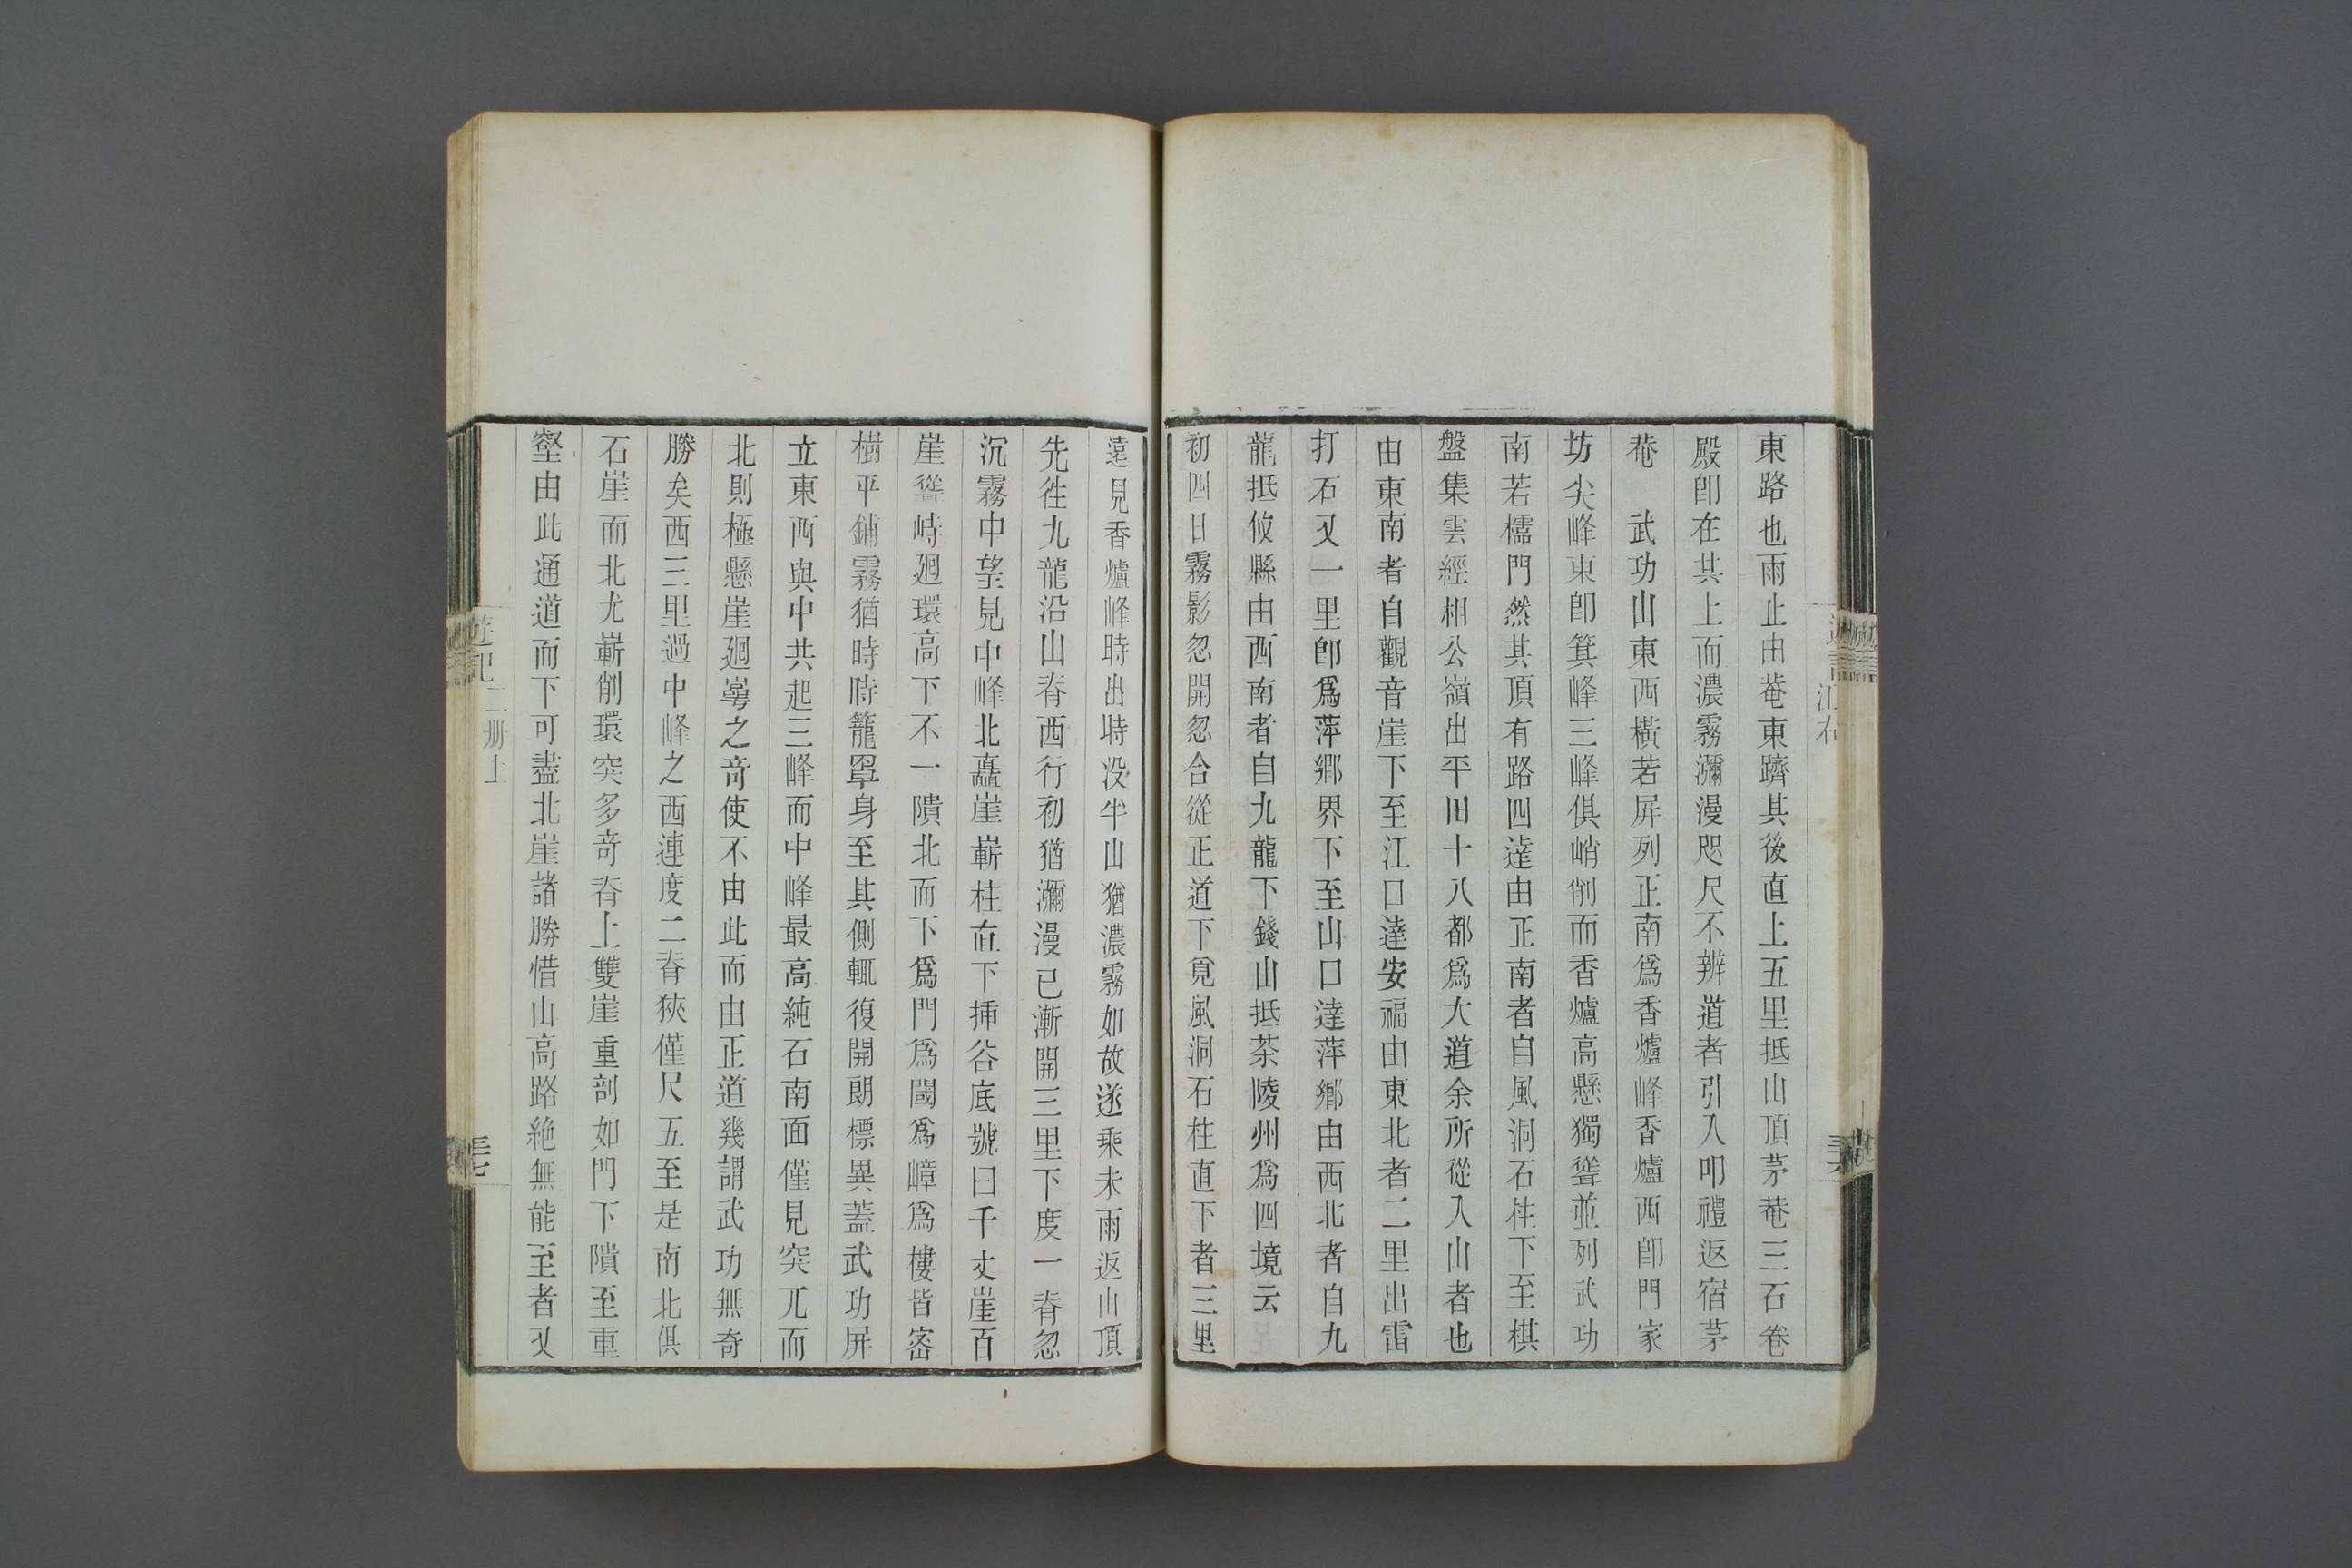 東路也雨止由菴東躋其後直上五里抵山頂茅菴三石卷
殿卽在其上而濃霧瀰漫咫尺不辨道者引入叩禮返宿茅
菴　武功山東西橫若屏列正南爲香爐峰香爐西卽門家
坊尖峰東卽箕峰三峰俱峭削而香爐高懸獨聳並列武功
南若櫺門然其頂有路四達由正南者自風洞石柱下至棋
盤集雲經相公嶺出平田十八都爲大道余所從入山者也
由東南者自觀音崖下至江口達安福由東北者二里出雷
打石又一里卽爲萍鄉界下至山口達萍鄉由西北者自九
龍抵攸縣由西南者自九龍下錢山抵茶陵州爲四境云
初四日霧影忽開忽合從正道下覓風洞石柱直下者三里
遠見香爐峰時出時没半山猶濃霧如故遂乘未雨返山頂
先徃九龍沿山脊西行初猶瀰漫已漸開三里下度一脊忽
沉霧中望見中峰北矗崖嶄柱直下揷谷底號曰千丈崖百
崖聳峙廻環高下不一隤北而下爲門爲闉爲嶂爲樓皆宻
樹平鋪霧猶時時籠罩身至其側輒復開朗標異蓋武功屏
立東西與中共起三峰而中峰最高純石南面僅見突兀而
北則極懸崖廻崿之竒使不由此而由正道幾謂武功無奇
勝矣西三里過中峰之西連度二脊狹僅尺五至是南北俱
石崖而北尤嶄削環突多竒脊上雙崖重剖如門下隤至重
壑由此通道而下可盡北崖諸勝惜山高路絶無能至者又
遊記
二册上
江右